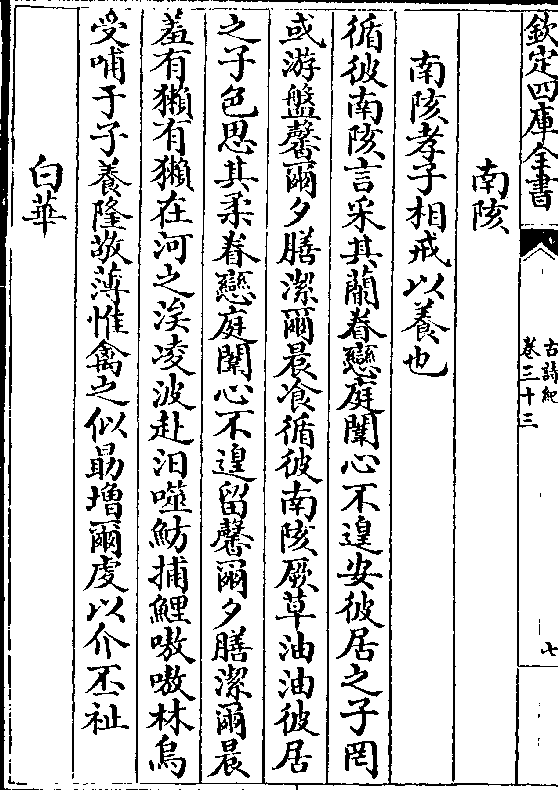 欽定四庫全書
古詩紀
卷三十三
七
南陔
南陔孝子相戒以養也
循彼南陔言采其蘭眷戀庭闈心不遑安彼居之子罔
或游盤馨爾夕膳潔爾晨飡循彼南陔厥草油油彼居
之子色思其柔眷戀庭闈心不遑留馨爾夕膳潔爾晨
羞有獺有獺在河之涘凌波赴汨噬魴捕鯉嗷嗷林烏
受哺于子養隆敬薄惟禽之似勗增爾虔以介丕祉
白華